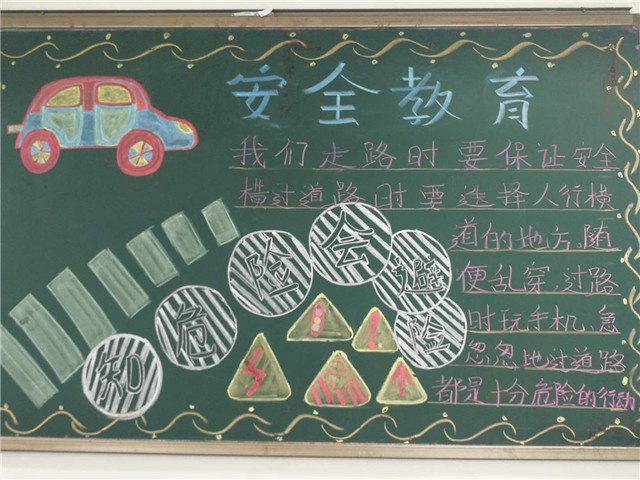 安全教育
我们走路时要保证安全
横过道路时要选择人行横
道的地方。随
便乱穿,过路
时玩手机,急
忽忽地过道路
都是十分危险的行动
知危险会避险